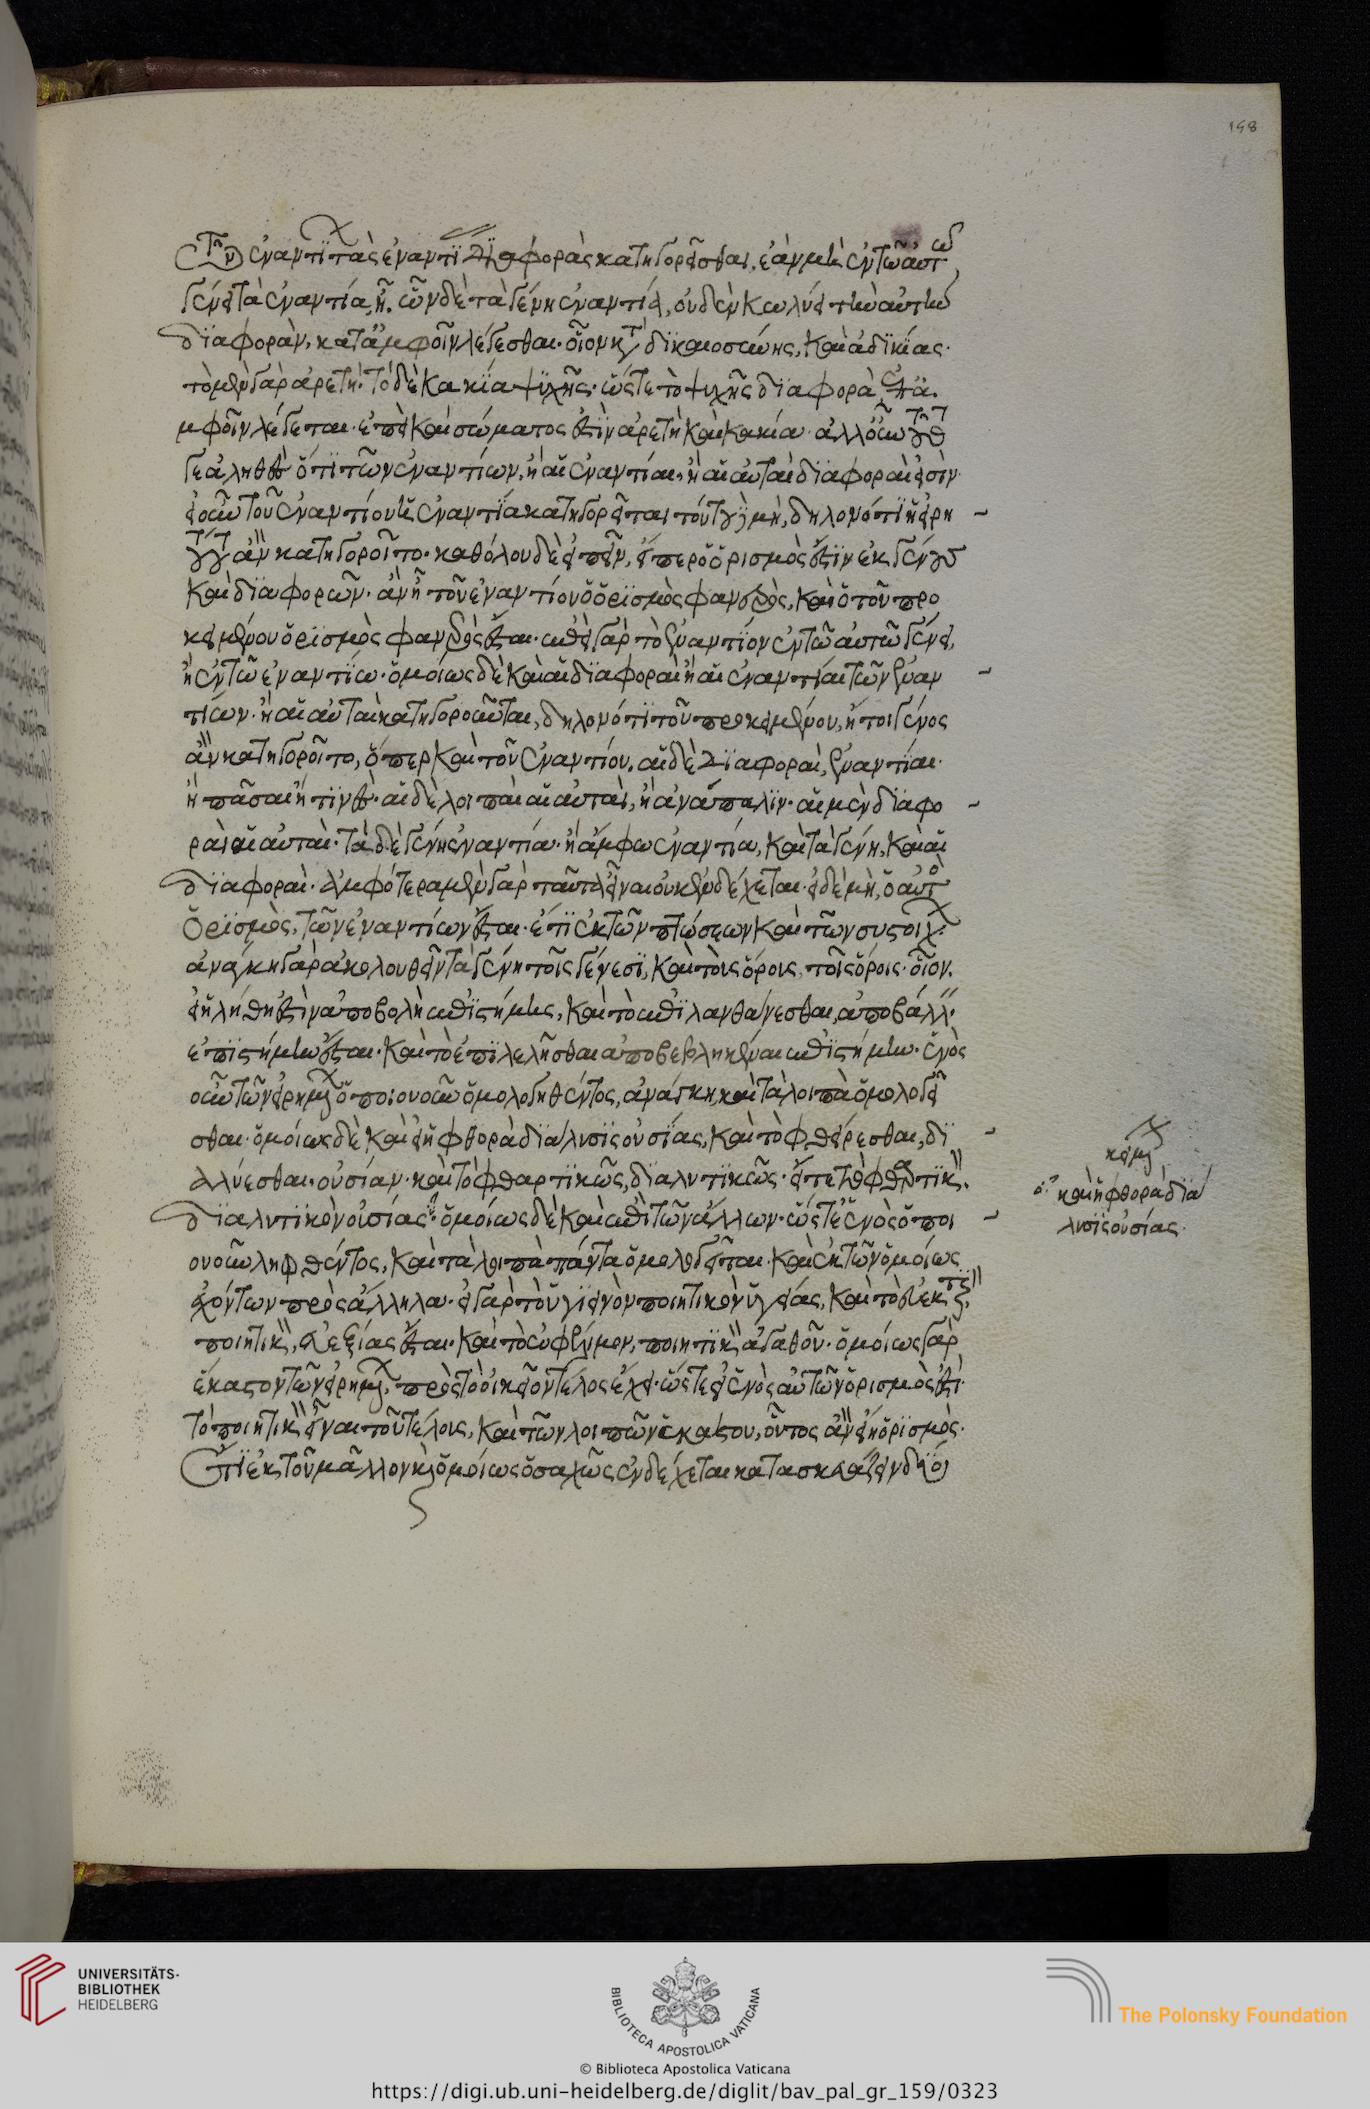 τῶν ἐναντίων τὰς ἐναντίας διαφορὰς κατηγορεῖσθαι, ἐὰν μὴ ἐν τῶ αὐτῶ
γένει τὰ ἐναντία ἦ. ὧν δὲ τὰ γένη ἐναντία, οὐδὲν κωλύει τὴν αὐτὴν
διαφορὰν, κατ' ἀμφοῖν λέγεσθαι. οἷον κατὰ δικαιοσύνης, καὶ ἀδικίας.
τὸ μὲν γὰρ ἀρετὴ. τὸ δὲ κακία ψυχῆς. ὥστε τὸ ψυχῆς διαφορὰ ἐπ' ἀ
μφοῖν λέγεται. ἐπεὶ καὶ σώματος ἐστὶν ἀρετὴ καὶ κακία. ἀλλ' οὖν τοῦτό
γε ἀληθὲς ὅτι τῶν ἐναντίων, ἢ αἱ ἐναντίαι, ἢ αἱ αὐταὶ διαφοραὶ εἰσὶν.
εἰ οὖν τοῦ ἐναντίου ἡ ἐναντία κατηγορεῖται τούτου δὲ μὴ, δηλονότι ἡ εἰρη
μένη τούτου ἂν κατηγοροῖτο. καθόλου δὲ εἰπεῖν, ἐπεὶ ὁ ὁρισμὸς ἐστὶν ἐκ γένους
καὶ διαφορῶν. ἂν ἦ τοῦ ἐναντίου ὁ ὁρισμὸς φανερὸς, καὶ ὁ τοῦ προ
κειμένου ὁρισμὸς φανερὸς ἔσται. ἐπεὶ γὰρ τὸ ἐναντίον ἐν τῶ αὐτῶ γένει,
ἢ ἐν τῶ ἐναντίω. ὁμοίως δὲ καὶ αἱ διαφοραὶ ἢ αἱ ἐναντίαι τῶν ἐναν
τίων. ἢ αἱ αὐταὶ κατηγοροῦνται, δηλονότι τοῦ προκειμένου, ἤτοι γένος
ἂν κατηγοροῖτο, ὅπερ καὶ τοῦ ἐναντίου. αἱ δὲ διαφοραὶ, ἐναντίαι.
ἢ πᾶσαι ἢ τινὲς. αἱ δὲ λοιπαὶ αἱ αὐταὶ, ἢ ἀνάπαλιν. αἱ μὲν διαφο
ραὶ αἱ αὐταὶ. τὰ δὲ γένη ἐναντία. ἢ ἄμφω ἐναντία, καὶ τὰ γένη, καὶ αἱ
διαφοραὶ. ἀμφότερα μὲν γὰρ ταῦτα εἶναι οὐκ ἐνδέχεται. εἰ δὲ μὴ, ὁ αὐτὸς
ὁρισμὸς, τῶν ἐναντίων ἔσται. ἔτι ἐκ τῶν πτώσεων καὶ τῶν συστοίχων.
ἀνάγκη γὰρ ἀκολουθεῖν τὰ γένη τοῖς γένεσι, καὶ τοὺς ὅρους τοῖς ὅροις. οἷον,
εἰ ἡ λήθη ἐστὶν ἀποβολὴ ἐπιστήμης, καὶ τὸ ἐπιλανθάνεσθαι, ἀποβάλλειν
ἐπιστήμην ἔσται. καὶ τὸ ἐπιλελῆσθαι ἀποβεβληκέναι ἐπιστήμην. ἑνὸς
οὖν τῶν εἰρημένων ὁποιουοῦν ὁμολογηθέντος, ἀνάγκη καὶ τὰ λοιπὰ ὁμολογεῖ
σθαι. ὁμοίως δὲ καὶ εἰ ἡ φθορὰ διάλυσις οὐσίας, καὶ τὸ φθείρεσθαι, δι
αλύεσθαι οὐσίαν. καὶ τὸ φθαρτικῶς, διαλυτικῶς. εἴ τε τὸ φθαρτικὸν.
διαλυτικὸν οὐσίας. ὁμοίως δὲ καὶ ἐπὶ τῶν ἄλλων. ὥστε ἑνὸς ὁποι
ουοῦν ληφθέντος, καὶ τὰ λοιπὰ πάντα ὁμολογεῖται. καὶ ἐκ τῶν ὁμοίως
ἐχόντων πρὸς ἄλληλα. εἰ γὰρ τὸ ὑγιεινὸν ποιητικὸν ὑγείας, καὶ τὸ εὐεκτικὸν
ποιητικὸν, εὐεξίας ἔσται. καὶ τὸ ὠφέλιμον, ποιητικὸν ἀγαθοῦ. ὁμοίως γὰρ
ἕκαστον τῶν εἰρημένων, πρὸς τὸ οἰκεῖον τέλος ἔχει. ὥστε εἰ ἑνὸς αὐτῶν ὁρισμὸς ἐστὶ
τὸ ποιητικὸν εἶναι τοῦ τέλους, καὶ τῶν λοιπῶν ἑκάστου, οὗτος ἂν εἴη ὁρισμὸς.
ἔτι ἐκ τοῦ μᾶλλον καὶ ὁμοίως ὁσαχῶς ἐνδέχεται κατασκευάζειν δύο
κειμένων
καὶ ἡ φθορὰ διά
λυσις οὐσίας.
198
UNIVERSITÄTS-
BIBLIOTHEK
HEIDELBERG
BIBLIOTECA APOSTOLICA VATICANA
© Biblioteca Apostolica Vaticana
The Polonsky Foundation
https://digi.ub.uni-heidelberg.de/diglit/bav_pal_gr_159/0323